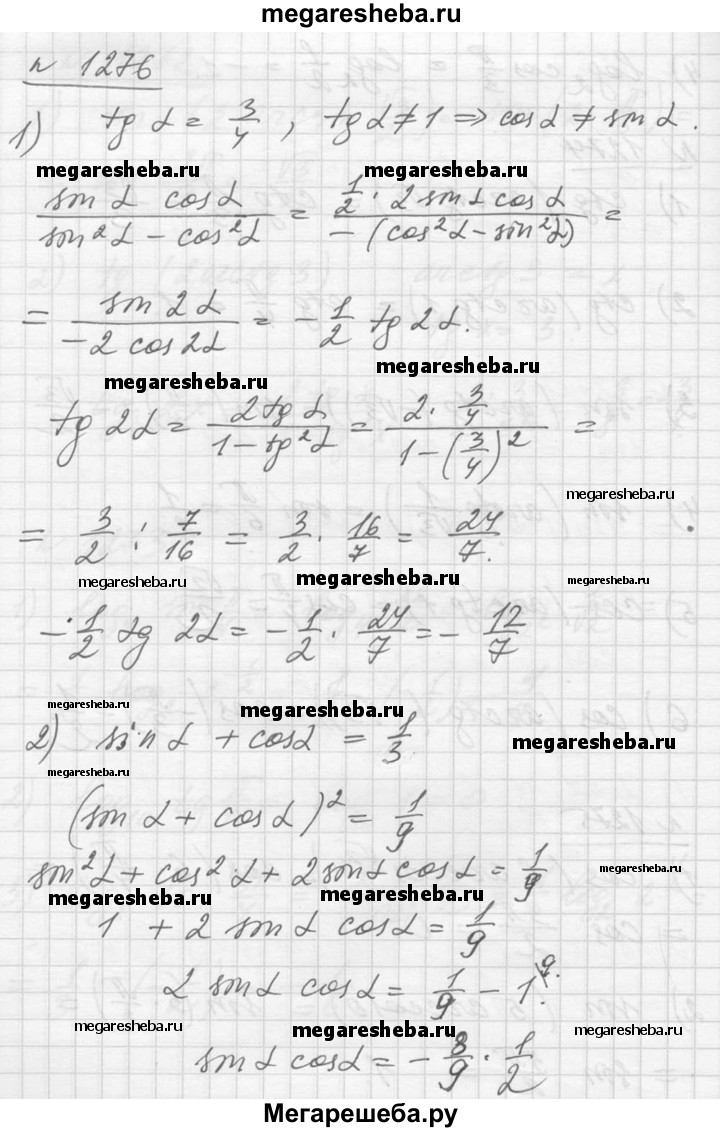 megaresheba.ru
n 1276
1) tg α = 3/4 , tg α ≠ 1 ⇒ cos α ≠ sin α.
megaresheba.ru megaresheba.ru
sin α cos α / (sin²α − cos²α) = (1/2 · 2 sin α cos α) / (−(cos²α − sin²α)) =
= sin 2α / (−2 cos 2α) = − 1/2 tg 2α.
megaresheba.ru megaresheba.ru
tg 2α = 2 tg α / (1 − tg²α) = (2 · 3/4) / (1 − (3/4)²) =
megaresheba.ru
= 3/2 : 7/16 = 3/2 · 16/7 = 24/7.
megaresheba.ru megaresheba.ru megaresheba.ru
− 1/2 tg 2α = − 1/2 · 24/7 = − 12/7
megaresheba.ru megaresheba.ru
2) sin α + cos α = 1/3.
megaresheba.ru
megaresheba.ru
(sin α + cos α)² = 1/9
sin²α + cos²α + 2 sin α cos α = 1/9
megaresheba.ru
megaresheba.ru megaresheba.ru
1 + 2 sin α cos α = 1/9
2 sin α cos α = 1/9 − 1\9.
megaresheba.ru megaresheba.ru megaresheba.ru
sin α cos α = − 8/9 · 1/2
Мегарешеба.ру